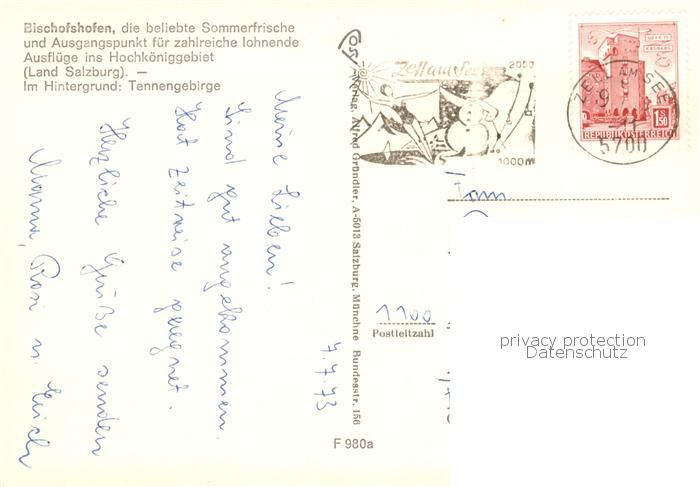 Bischofshofen, die beliebte Sommerfrische
und Ausgangspunkt für zahlreiche lohnende
Ausflüge ins Hochköniggebiet
(Land Salzburg). —
Im Hintergrund: Tennengebirge
7.7.73
Meine Lieben!
Sind gut angekommen.
Hat zeitweise geregnet.
Herzliche Grüße senden
Mama, Rosi u. Erich
Verlag Alfred Gründler, A-5013 Salzburg, Münchne Bundesstr. 156
F 980a
Zell am See
2000
1000m
WIEN
ERDBERG
1S50
REPUBLIK ÖSTERREICH
ZELL AM SEE
5700
Fam
1100
Postleitzahl
privacy protection
Datenschutz